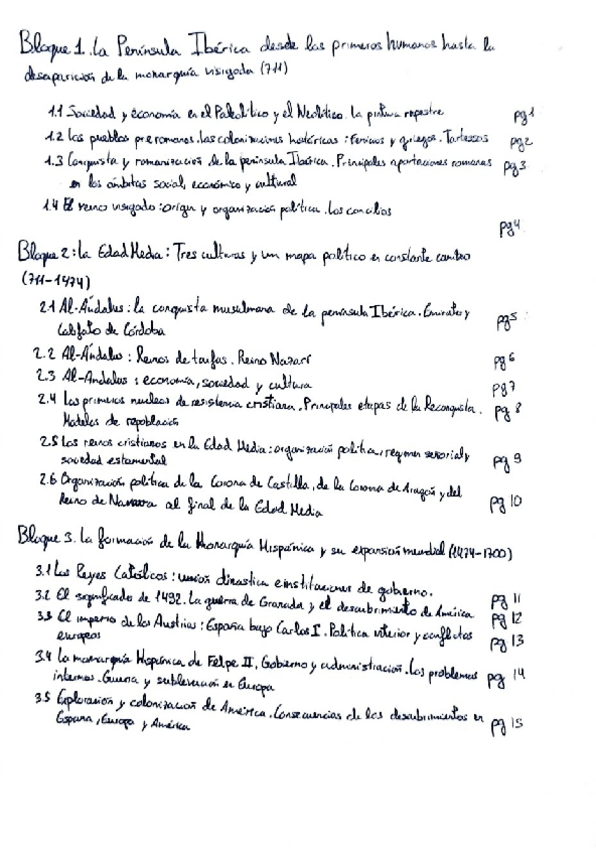 Bloque 1. La Península Ibérica desde los primeros humanos hasta la
desaparición de la monarquía visigoda (711)
1.1 Sociedad y economía en el Paleolítico y el Neolítico. La pintura rupestre pg 1
1.2 Los pueblos prerromanos. Las colonizaciones históricas: fenicios y griegos. Tartessos pg 2
1.3 Conquista y romanización de la península Ibérica. Principales aportaciones romanas pg 3
en los ámbitos social, económico y cultural
1.4 El reino visigodo: origen y organización política. Los concilios
pg 4
Bloque 2: La Edad Media: Tres culturas y un mapa político en constante cambio
(711-1474)
2.1 Al-Ándalus: la conquista musulmana de la península Ibérica. Emirato y
Califato de Córdoba pg 5
2.2 Al-Ándalus: Reinos de taifas. Reino Nazarí pg 6
2.3 Al-Andalus: economía, sociedad y cultura pg 7
2.4 Los primeros nucleos de resistencia cristiana. Principales etapas de la Reconquista. pg 8
Modelos de repoblación
2.5 Los reinos cristianos en la Edad Media: organización política, régimen señorial y
sociedad estamental pg 9
2.6 Organización política de la Corona de Castilla, de la Corona de Aragón y del
Reino de Navarra al final de la Edad Media pg 10
Bloque 3. La formación de la Monarquía Hispánica y su expansión mundial (1474-1700)
3.1 Los Reyes Católicos: unión dinastica e instituciones de gobierno. pg 11
3.2 El significado de 1492. La guerra de Granada y el descubrimiento de América pg 12
3.3 El imperio de los Austrias: España bajo Carlos I. Política interior y conflictos pg 13
europeos
3.4 La monarquía Hispánica de Felipe II. Gobierno y administración. Los problemas pg 14
internos. Guerra y sublevación en Europa
3.5 Exploración y colonización de América. Consecuencias de los descubrimientos en pg 15
España, Europa y América